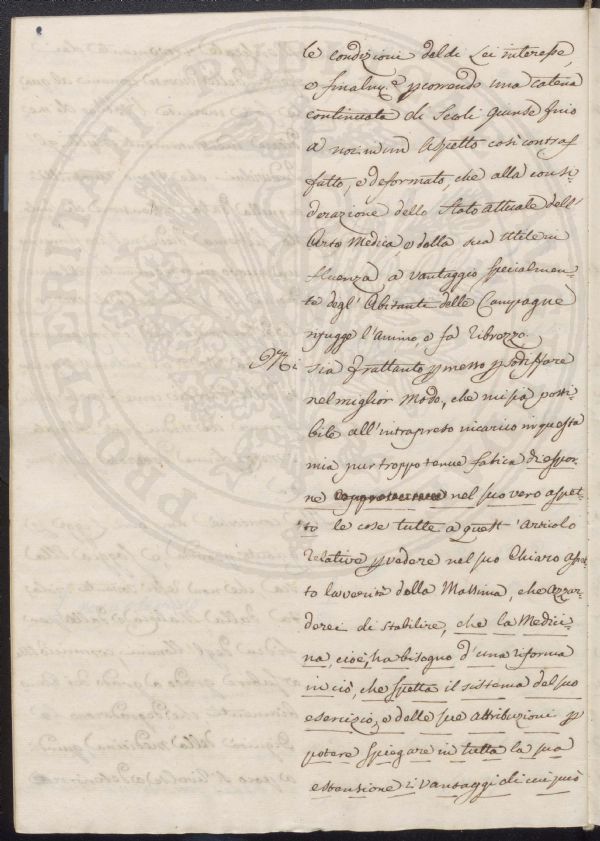 le condizioni del di Lei interesse,
e finalm.e pcorrendo una catena
continuata di Secoli giunse fino
a noi in un Aspetto così contraf,
fatto, e deformato, che alla consi,
derazione dello Stato attuale dell'
Arte Medica, e della sua Utile in
fluenza a vantaggio specialmen,
te degl' Abitanti delle Campagne
rifugge l'Animo, e fà ribrezzo.
Mi sia frattanto pmesso p sodisfare
nel miglior Modo, che mi sia possi,
bile all'intrapreso incarico in questa
mia pur troppo tenue fatica di espor,
ne nel suo vero aspet,
to le cose tutte a quest'Articolo
relative p vedere nel suo Chiaro aspet,
to la verità della Massima, che Azzar,
derei di stabilire, che la Medici,
na, cioè, ha bisogno d'una riforma
in ciò, che spetta il sistema del suo
esercizio, e delle sue attribuzioni p
potere spiegare in tutta la sua
estensione i vantaggi di cui può